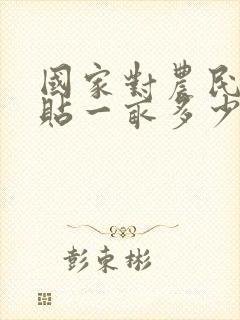 國家對農民
貼一畝多少
彭束彬